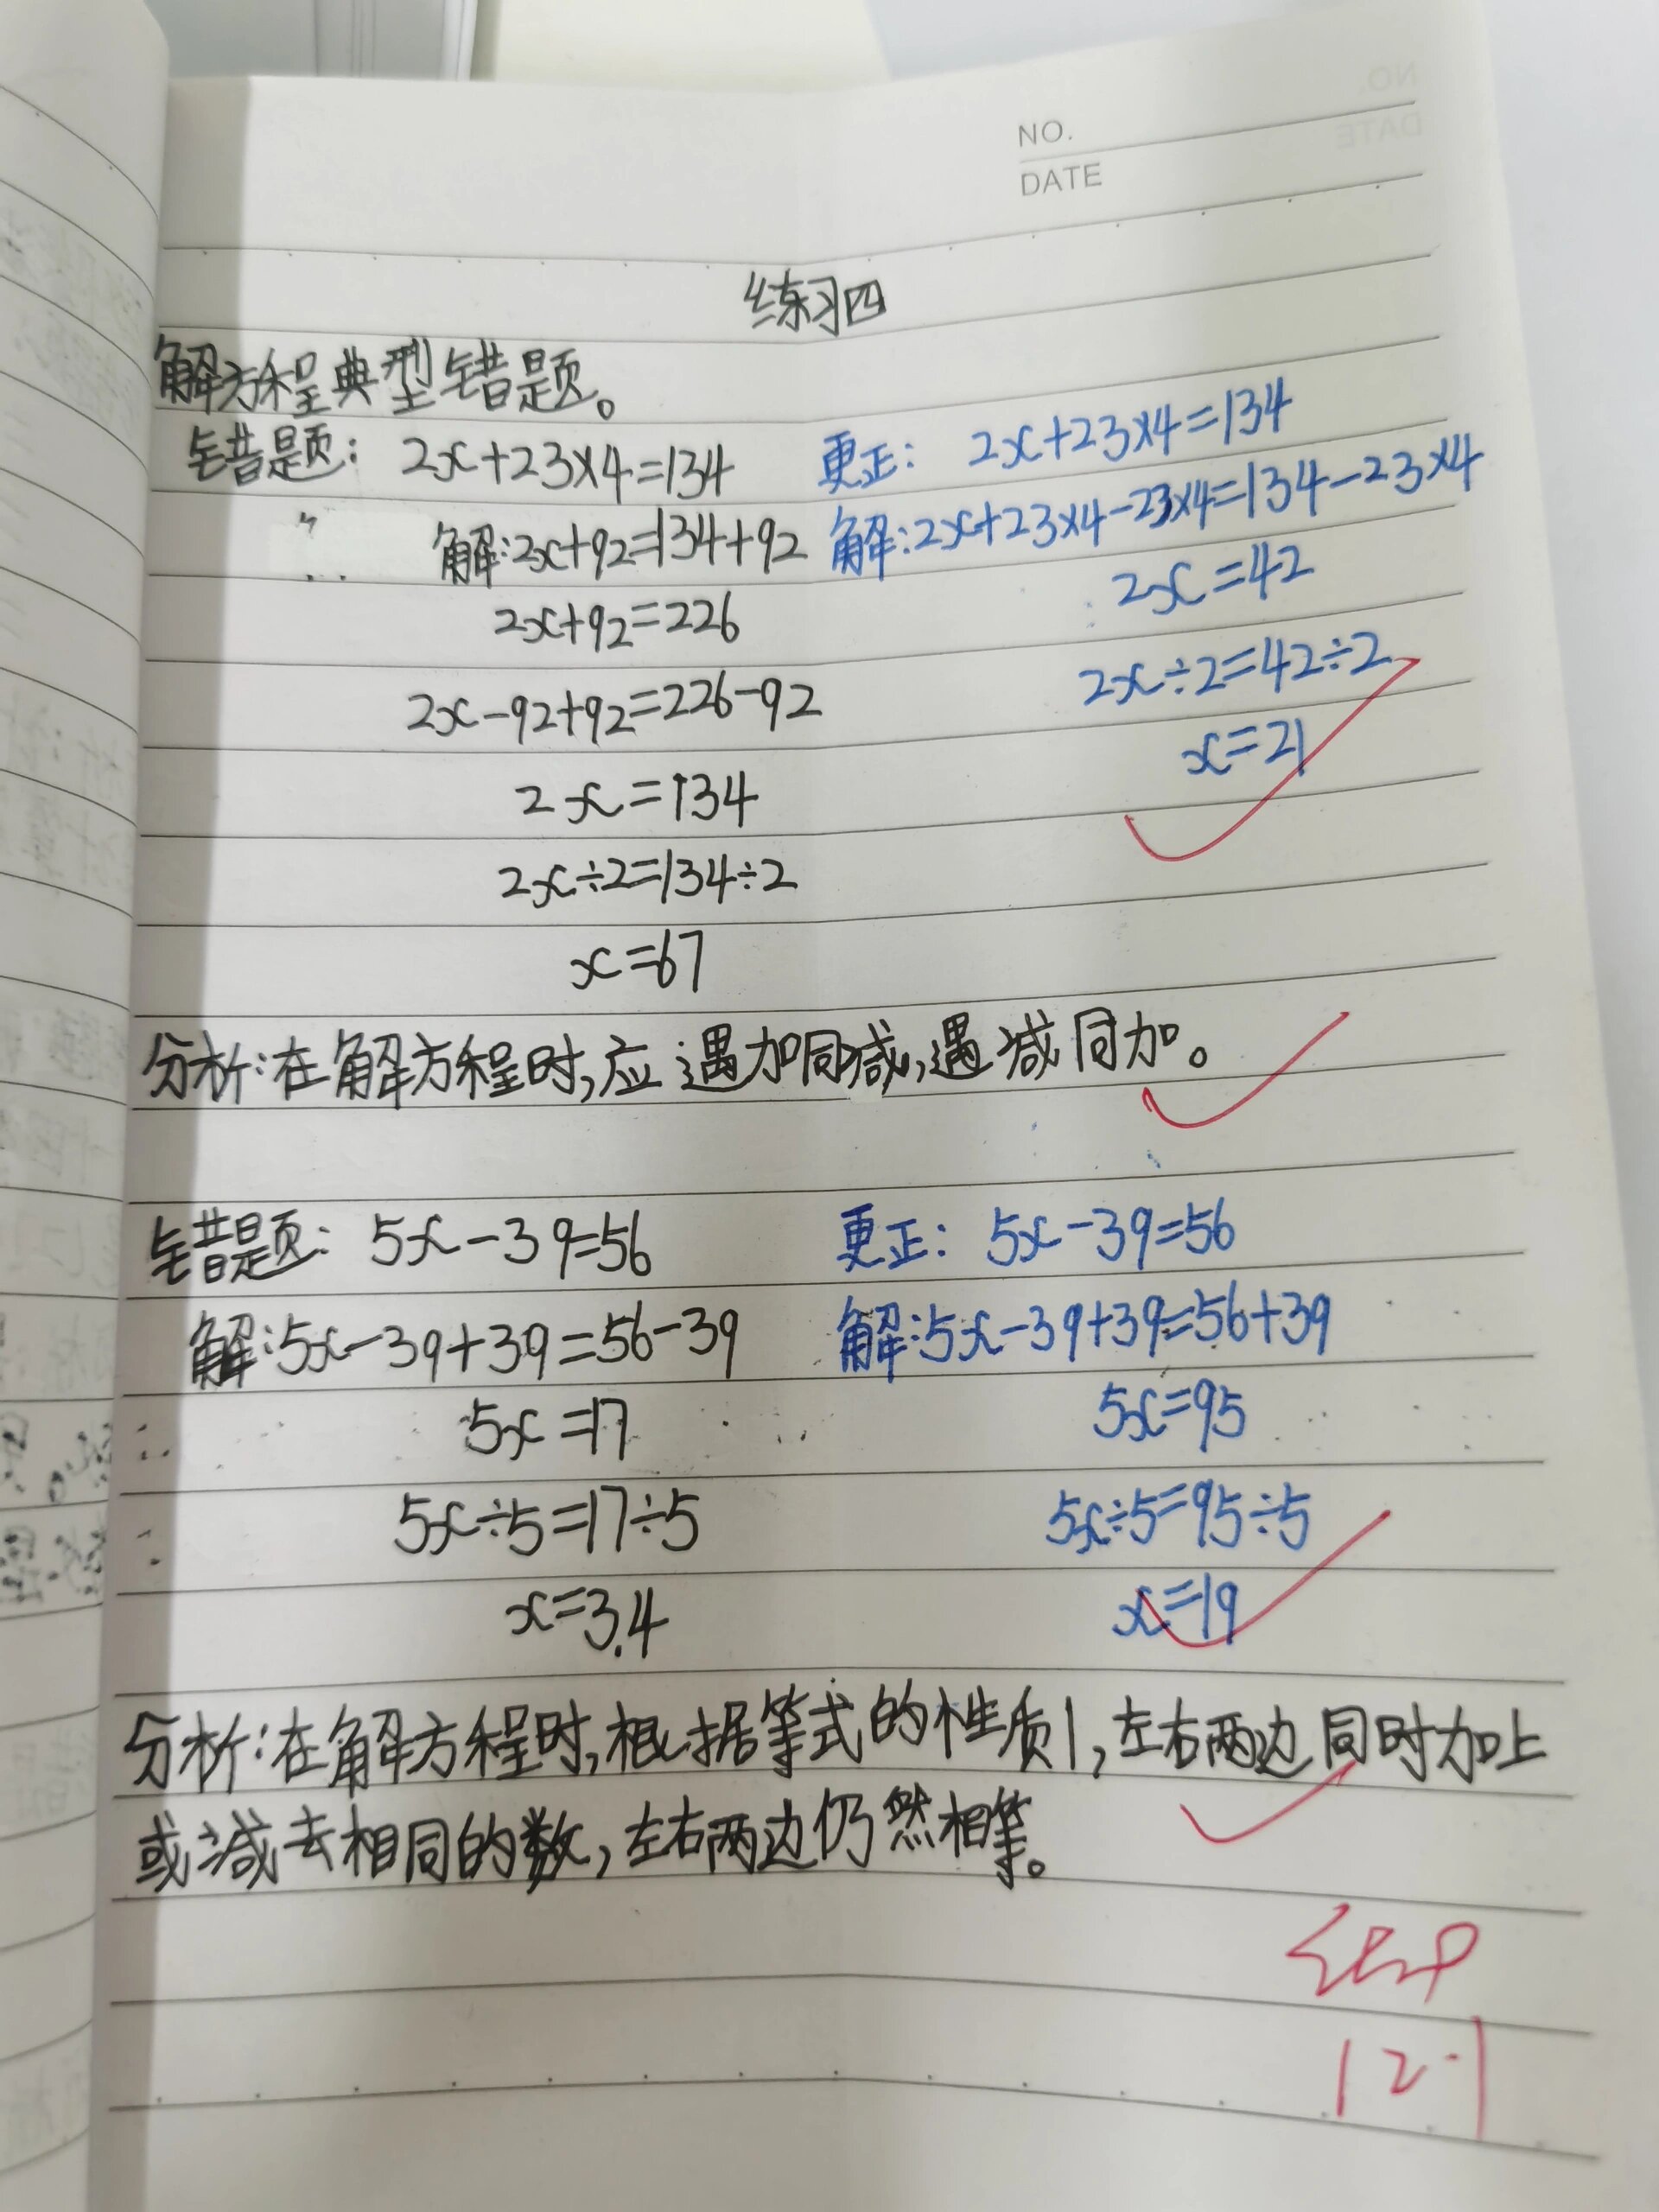 NO.
DATE
练习四
解方程典型错题。
错题: 2x+23×4=134
解:2x+92=134+92
2x+92=226
2x-92+92=226-92
2x=134
2x÷2=134÷2
x=67
更正: 2x+23×4=134
解:2x+23×4-23×4=134-23×4
2x=42
2x÷2=42÷2
x=21
分析:在解方程时,应遇加同减,遇减同加。
错题: 5x-39=56
解:5x-39+39=56-39
5x=17
5x÷5=17÷5
x=3.4
更正: 5x-39=56
解:5x-39+39=56+39
5x=95
5x÷5=95÷5
x=19
分析:在解方程时,根据等式的性质1,左右两边同时加上
或减去相同的数,左右两边仍然相等。
12.1